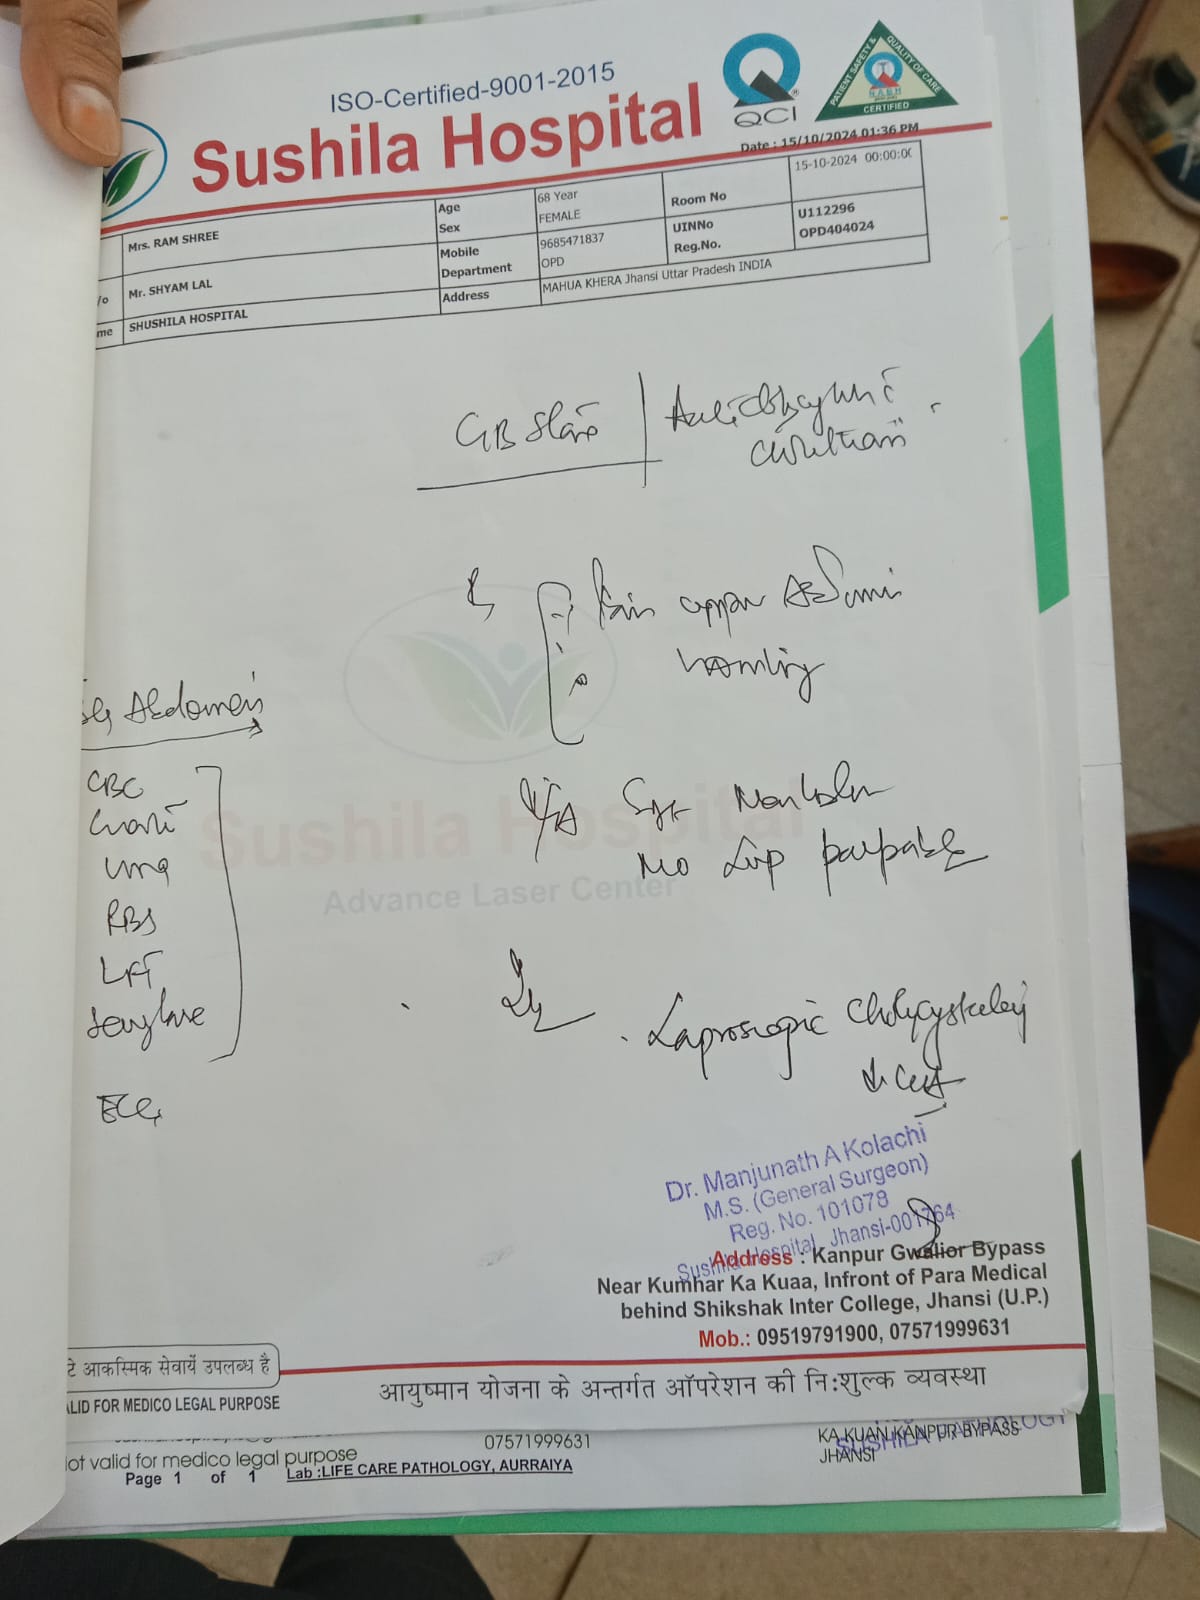 ISO-Certified-9001-2015
Sushila Hospital
QCI
PATIENT SAFETY & QUALITY OF CARE
CERTIFIED
Date : 15/10/2024 01:36 PM
Mrs. RAM SHREE Age 68 Year Room No 15-10-2024 00:00:0
Sex FEMALE
/o Mr. SHYAM LAL Mobile 9685471837 UINNo U112296
Department OPD Reg.No. OPD404024
me SHUSHILA HOSPITAL Address MAHUA KHERA Jhansi Uttar Pradesh INDIA
GB Stone
Pain upper Abdomin
Vomiting
Abdomen
CBC
RBS
LFT
ECG
P/A Soft
No Lump palpable
Laproscopic
Sushila Hospital
Advance Laser Center
Dr. Manjunath A Kolachi
M.S. (General Surgeon)
Reg. No. 101078
Sushila Hospital, Jhansi-001764
Address : Kanpur Gwalior Bypass
Near Kumhar Ka Kuaa, Infront of Para Medical
behind Shikshak Inter College, Jhansi (U.P.)
Mob.: 09519791900, 07571999631
टे आकस्मिक सेवायें उपलब्ध है
LID FOR MEDICO LEGAL PURPOSE
आयुष्मान योजना के अन्तर्गत ऑपरेशन की नि:शुल्क व्यवस्था
07571999631
KA KUAN KANPUR BYPASS
JHANSI
ot valid for medico legal purpose
Page 1 of 1 Lab :LIFE CARE PATHOLOGY, AURRAIYA